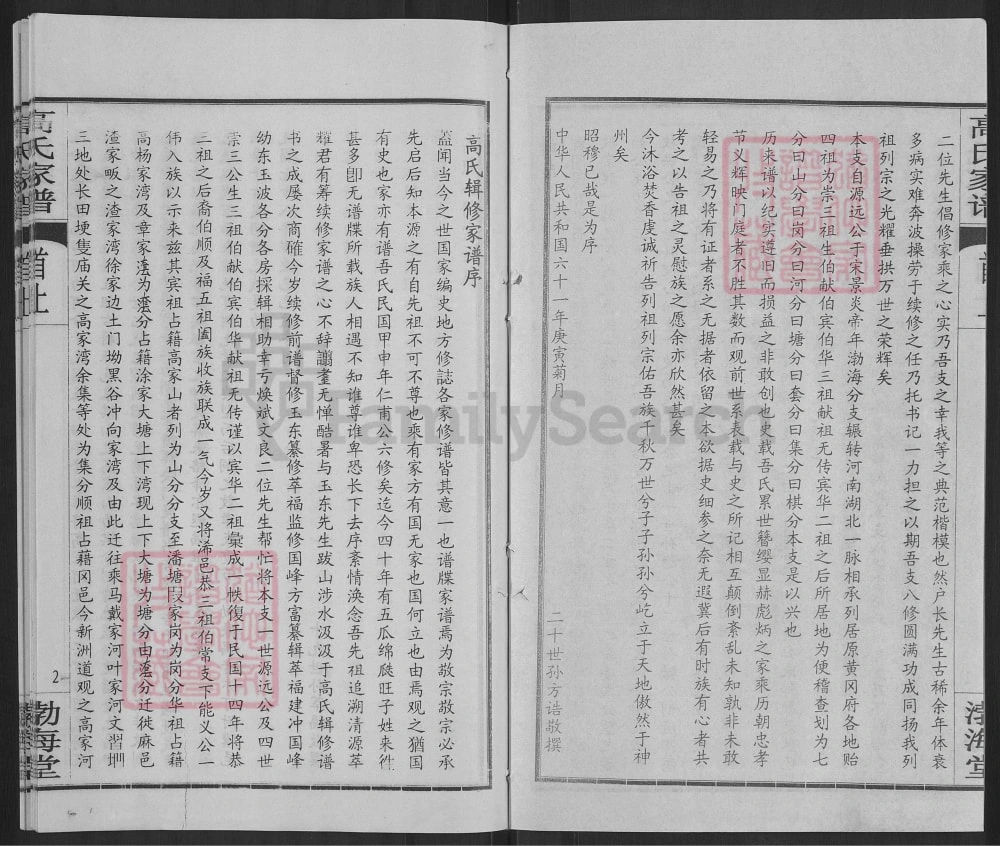 二位先生倡修家乘之心实乃吾支之幸我等之典范楷模也然户长先生古稀余年体衰
多病实难奔波操劳于续修之任乃托书记一力担之以期吾支八修圆满功成同扬我列
祖列宗之光耀垂拱万世之荣辉矣
本支自源远公于宋景炎帝年渤海分支辗转河南湖北一脉相承列居原黄冈府各地贻
四祖为崇三祖生伯献伯宾伯华三祖献祖无传宾华二祖之后所居地为便稽查划为七
分曰山分曰岗分曰河分曰塘分曰套分曰集分曰棋分本支是以兴也
历来谱以纪实遵旧而损益之非敢创也史载吾氏累世簪缨显赫彪炳之家乘历朝忠孝
节义辉映门庭者不胜其数而观前世系表载与史之所记相互颠倒紊乱未知孰非未敢
轻易之乃将有证者系之无据者依留之本欲据史细参之奈无遐冀后有时族有心者共
考之以告祖之灵慰族之愿余亦欣然甚矣
今沐浴焚香虔诚祈告列祖列宗佑吾族千秋万世兮子子孙孙兮屹立于天地傲然于神
州矣
昭穆已哉是为序
中华人民共和国六十一年庚寅菊月
二十世孙方诰敬撰
高氏家谱
首
渤海堂
高氏辑修家谱序
盖闻当今之世国家编史地方修誌各家修谱皆其意一也谱牒家谱焉为敬宗敬宗必承
先启后知本源之有自先祖不可不尊也乘有家方有国无家也国何立也由焉观之猶国
有史也家亦有谱吾氏民国甲申年仁甫公六修矣迄今四十年有五瓜绵瓞旺子姓来往
甚多卽无谱牒所载族人相遇不知谁尊谁卑恐长下去序紊情涣念吾先祖追溯清源萃
耀君有筹续修家谱之心不辞謭耋无惮酷暑与玉东先生跋山涉水汲汲于高氏辑修谱
书之成屡次商確今岁续修前谱督修玉东纂修萃福监修国峰方富纂辑萃福建冲国峰
幼东玉波各分各房採辑相助幸亏焕斌文良二位先生帮忙将本支一世源远公及四世
崇三公生三祖伯献伯宾伯华献祖无传谨以宾华二祖彙成一帙復于民国十四年将恭
三祖之后裔伯顺及福五祖阖族收族联成一气今岁又将浠邑恭三祖伯常支下能义公一
伟入族以示来兹其宾祖占籍高家山者列为山分分支至潘塘段家岗为岗分华祖占籍
高杨家湾及章家湾为套分占籍涂家大塘上下湾现上下大塘为塘分由套分迁徙麻邑
渣家畈之渣家湾徐家边土门坳黑谷冲向家湾及由此迁往乘马戴家河叶家河文習圳
三地处长田埂隻庙关之高家湾余集等处为集分顺祖占籍冈邑今新洲道观之高家河
高氏家谱
首上
2
勃海堂
FamilySearch